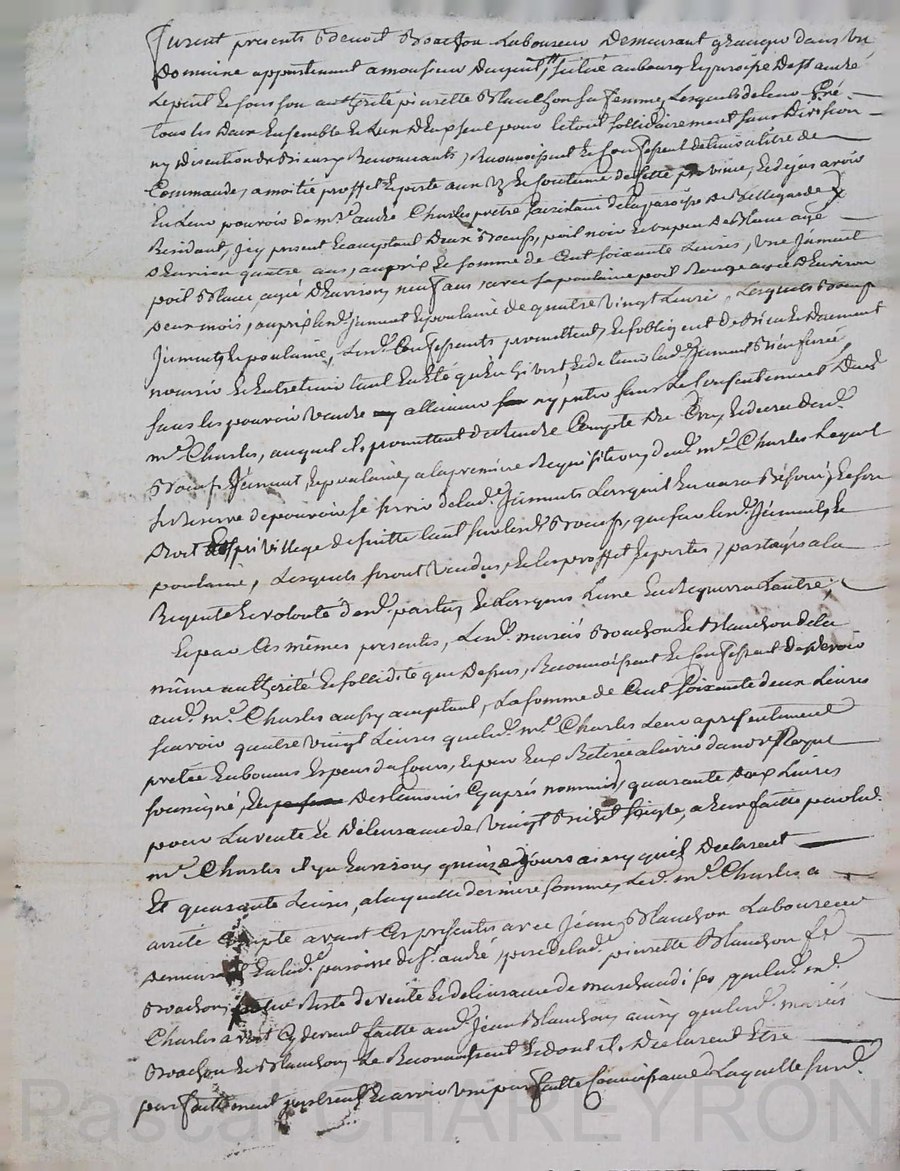 furent presents Benoit Brachon Laboureur Demeurant granger dans un
Domaine appartenant a monsieur Duguet, scitué au bourg et paroisse de St andré
Lepuit et sous son authorité pierrette Blanchon sa femme, Lesquels de leur gré
tous les Deux Ensemble et Lun D'Eux seul pour le tout sollidairement sans Division
ny Discution de Biens y Renonceants, Reconnoissent et Confessent detenir a titre de
Commande, a moitié proffet et perte aux us et Coutume de cette province, et dejas avoir
En Leur pouvoir de mr. andré Charles pretre sacristain de la paroisse de Bellegarde y
Residant, icy present Ecceptant Deux Boeufs, poil noir et un peu De Blanc agé
D'Environ quatre ans, au prix et somme de Cent soixante Livres, une Jument
poil Blanc, agée D'Environ neuf ans, avec sa poulaine poil Rouge agée D'Environ
Deux mois, au prix lad. Jument et poulaine de quatre vingt Livres, Lesquels Boeuf
Jument, et poulaine, Lesd. Confessants promettent, et sobligent de Bien et Duement
nourrir et Entretenir tant En Eté qu'En hivert, et de tenir lad. Jument Bien ferrée
sans les pouvoir vendre ny alliener ny autre sans Le Consentement Dud.
mr. Charles, auquel ils promettent de Rendre Compte Du Cru, et decru desd.
Boeuf Jument et poulaine, a la premiere Requisition, dud. mr. Charles Lequel
se Reserve de pouvoir se servir de la d. Jument Lorsquil En aura Besoin, et son
Droit et privillege de suitte tant sur lesd. Boeuf, que sur lesd. Jument, et
poulaine, Lesquels seront vendus, et les proffet et pertes, partagés a la
Requete et volonté d'esd. parties et Lorsque Lune En Requerra Lautre.
Et par Ces mêmes presentes, Lesd. mariés Brachon et Blanchon de la
même authorité et sollidité que Dessus, Reconnoissent et Confessent Devoir
aud. mr. Charles aussy acceptant, La somme de Cent soixante deux Livres
scavoir quatre vingt Livres que led. mr. Charles Leur a presentement
pretée En bonnes Especes du Cours, et par Eux Retirée a la vüe du nore. Royal
soussigné, et Des temoins Cy après nommés, quarante deux Livres
pour La vente et Délivrance de vingt Bichet seigle, a Eux faitte par led.
mr. Charles il y a Environ, quinze Jours ainsy quils Declarent
Et quarante Livres, a laquelle derniere somme, Led. mr. Charles a
arreté Compte avant Ces presentes avec Jean Blanchon Laboureur
Demeurant En lad. paroisse de St. andré, pere de lad. pierrette Blanchon fe
Brachon, Reste de vente et delivrance de marchandises que led. mr.
Charles avoit Cy devant faitte aud. Jean Blanchon, ainsy que lesd. mariés
Brachon et Blanchon Le Reconnoissent et dont ils Declarent Etre
parfaittement et avoir une parfaitte Connoissance, Laquelle susd.
Pascal CHAREYRON